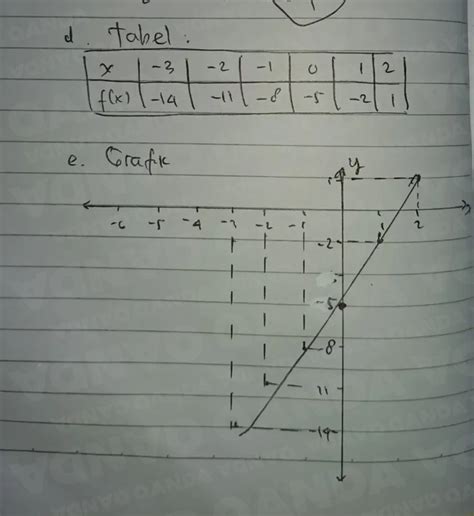 d. tabel :
x | -3 | -2 | -1 | 0 | 1 | 2
f(x) | -14 | -11 | -8 | -5 | -2 | 1
e. Grafik
y
-6 -5 -4 -3 -2 -1 1 2
-2
-5
-8
11
-14